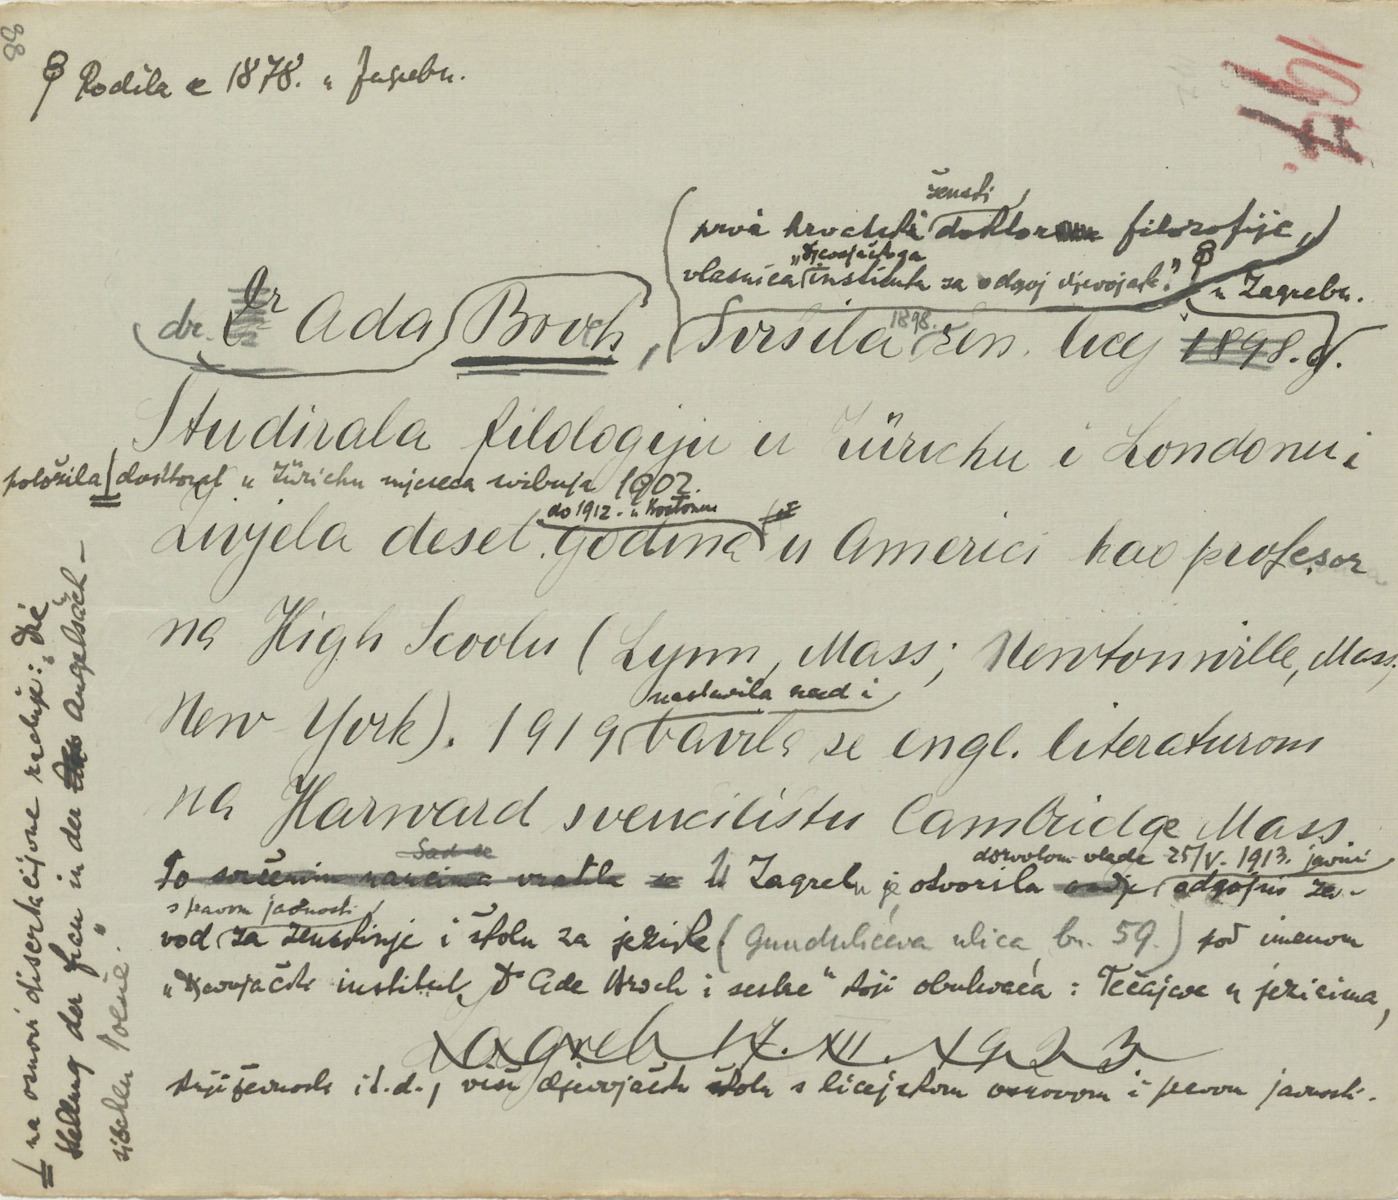 88
Rodila se 1878. u Zagrebu.
107.
ženski
prva hrvatski doktor filozofije,
"Djevojačkoga
vlasnica instituta za odgoj djevojak." u Zagrebu.
dr. Dr Ada Broch, Svršila 1898. žen. licej 1898. g.
Studirala filologiju u Zürichu i Londonu i
položila doktorat u Zürichu mjeseca svibnja 1902.
do 1912. u Bostonu
Živjela deset godina u Americi kao profesor
na High Scoolu (Lynn, Mass; Newtonville, Mass,
nastavila rad i
New York). 1919 bavila se engl. literaturom
na Harward sveučilištu Cambridge Mass.
Sad se
Po svršenim naucima vratila se U Zagrebu je otvorila
dozvolom vlade 25/V. 1913. javni
odgojni za-
s pravom javnosti
vod za ženskinje i školu za jezike (Gundulićeva ulica br. 59.) pod imenom
"Djevojački institut Dr Ade Broch i sestre" koji obuhvaća: Tečajeve u jezicima,
Zagreb 17. XII. 1923
književnosti i t.d., višu djevojačku školu s licejskom osnovom i pravom javnosti.
na osnovi disertacijone radnje: "Die
Stellung der Frau in der Angelsäch-
sischen Poesie."